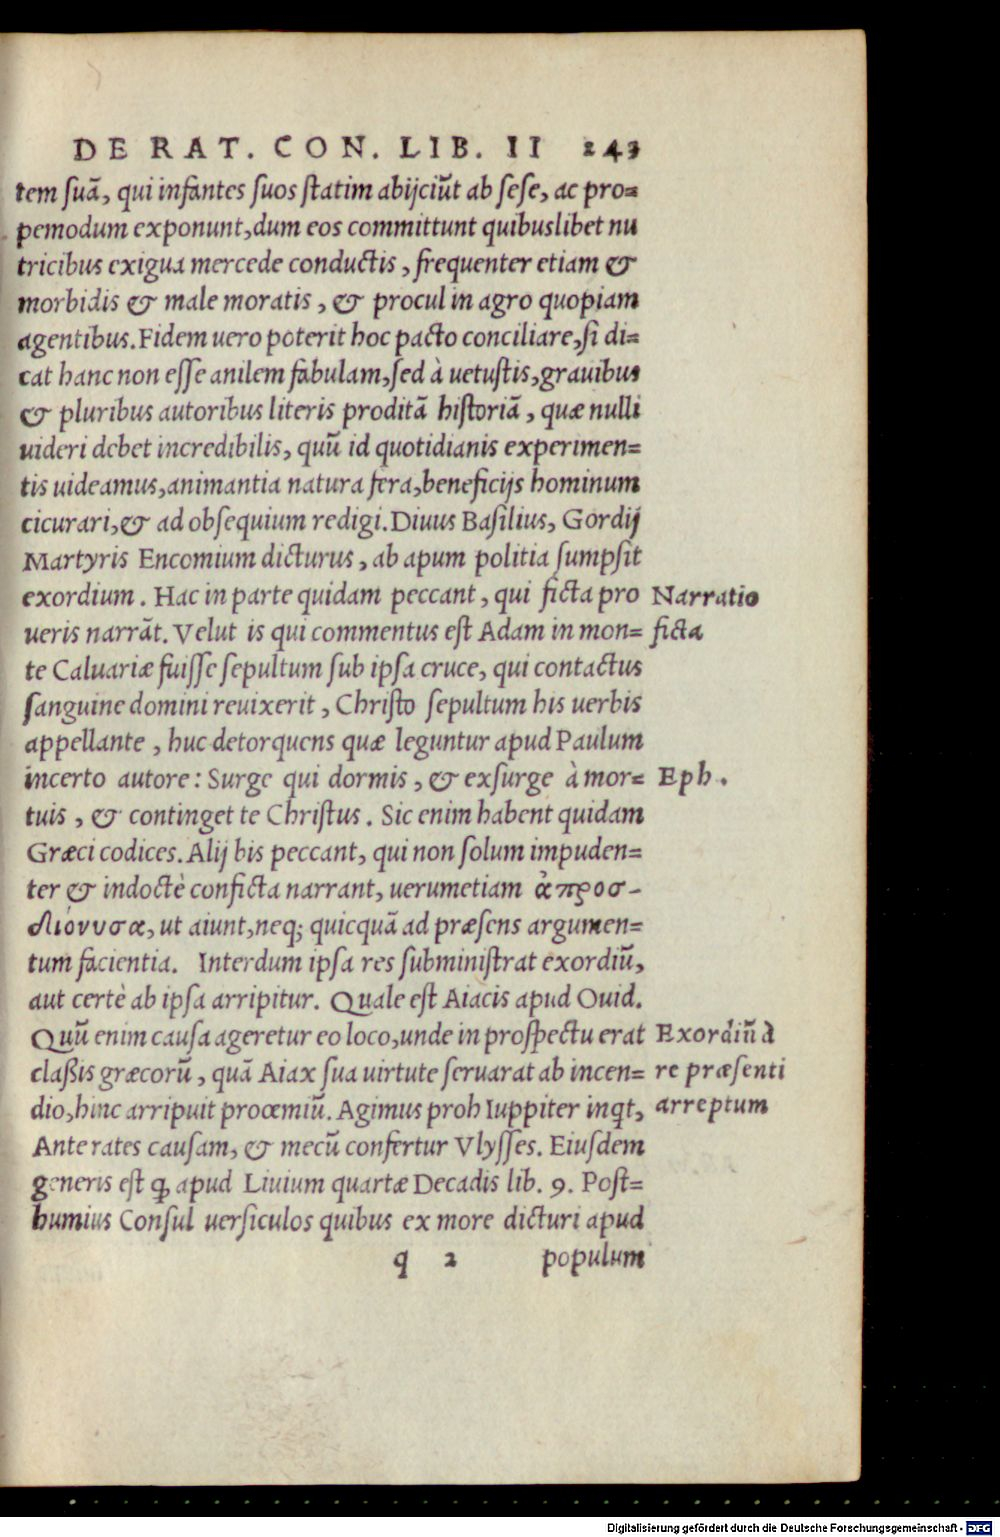 DE RAT. CON. LIB. II 243
tem suā, qui infantes suos statim abijciūt ab sese, ac pro=
pemodum exponunt, dum eos committunt quibuslibet nu
tricibus exigua mercede conductis, frequenter etiam &
morbidis & male moratis, & procul in agro quopiam
agentibus. Fidem uero poterit hoc pacto conciliare, si di=
cat hanc non esse anilem fabulam, sed à uetustis, grauibus
& pluribus autoribus literis proditā historiā, quæ nulli
uideri debet incredibilis, quū id quotidianis experimen=
tis uideamus, animantia natura fera, beneficijs hominum
cicurari, & ad obsequium redigi. Diuus Basilius, Gordij
Martyris Encomium dicturus, ab apum politia sumpsit
exordium. Hac in parte quidam peccant, qui ficta pro
Narratio
ueris narrāt. Velut is qui commentus est Adam in mon=
ficta
te Caluariæ fuisse sepultum sub ipsa cruce, qui contactus
sanguine domini reuixerit, Christo sepultum his uerbis
appellante, huc detorquens quæ leguntur apud Paulum
incerto autore: Surge qui dormis, & exsurge à mor=
Eph.
tuis, & continget te Christus. Sic enim habent quidam
Græci codices. Alij bis peccant, qui non solum impuden=
ter & indoctè conficta narrant, uerumetiam ἀπροσ-
διόνυσα, ut aiunt, neq; quicquā ad præsens argumen=
tum facientia. Interdum ipsa res subministrat exordiū,
aut certè ab ipsa arripitur. Quale est Aiacis apud Ouid.
Quū enim causa ageretur eo loco, unde in prospectu erat
Exordiū à
classis græcorū, quā Aiax sua uirtute seruarat ab incen=
re præsenti
dio, hinc arripuit proœmiū. Agimus proh Iuppiter inqt,
arreptum
Ante rates causam, & mecū confertur Vlysses. Eiusdem
generis est ꝙ apud Liuium quartæ Decadis lib. 9. Post=
humius Consul uersiculos quibus ex more dicturi apud
q 2 populum
Digitalisierung gefördert durch die Deutsche Forschungsgemeinschaft - DFG